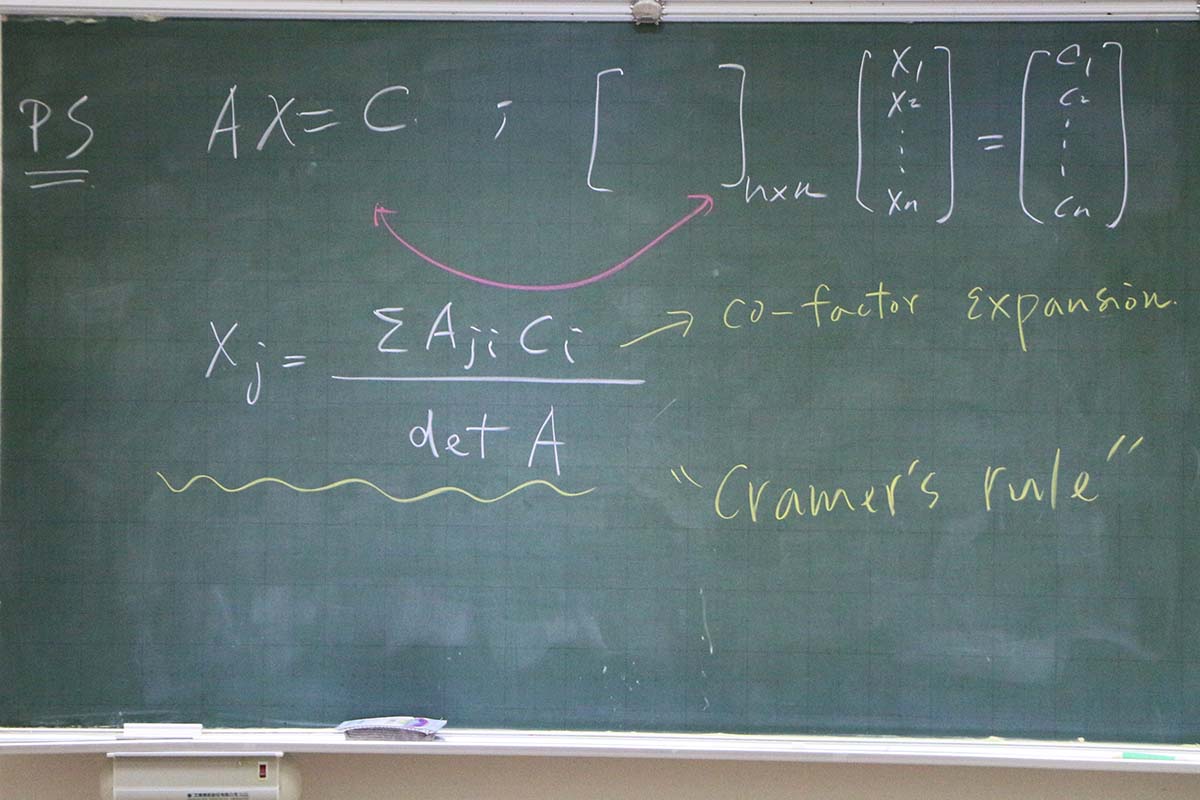 PS AX = C ; [ ]n×n [x1 x2 ⋮ xn] = [c1 c2 ⋮ cn]
Xj = ΣAjiCi / det A → co-factor expansion.
"Cramer's rule"